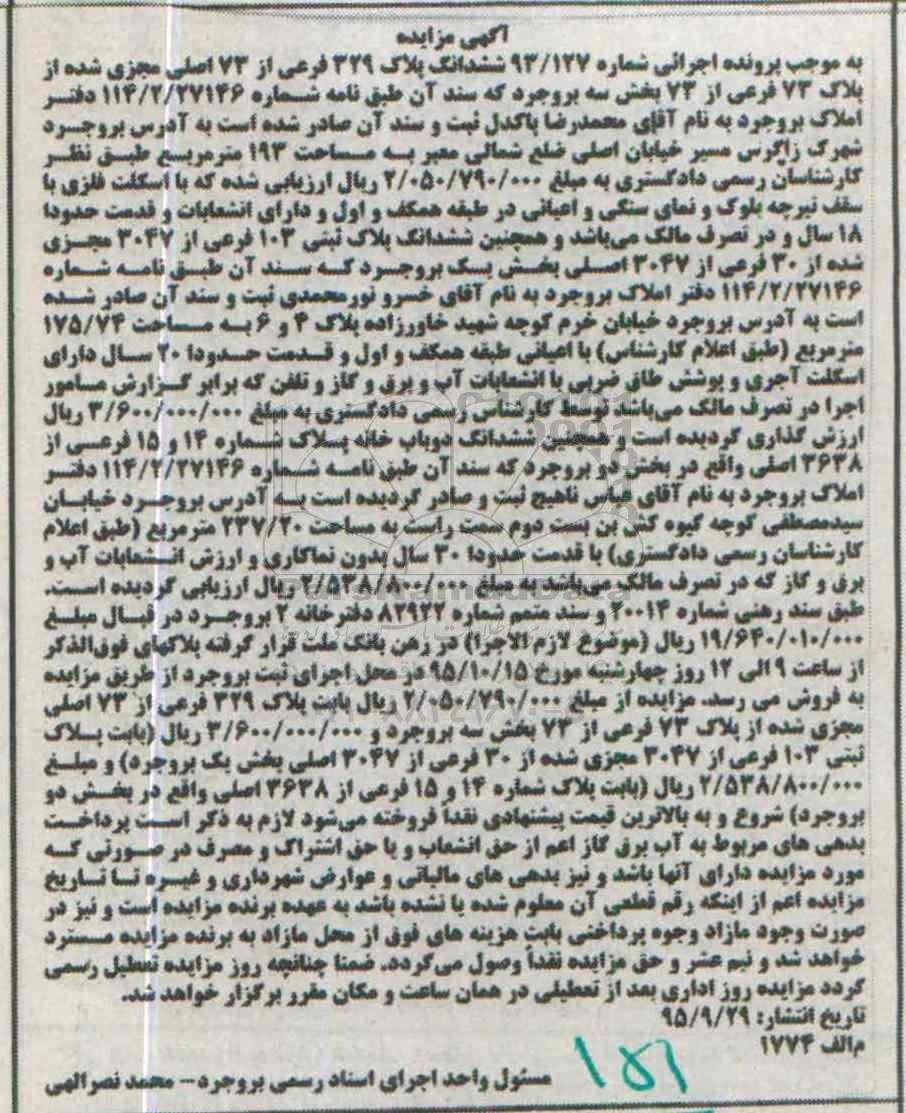 آگهی مزایده
به موجب پرونده اجرائی شماره ۹۳/۱۲۷ ششدانگ پلاک ۳۲۹ فرعی از ۷۳ اصلی مجزی شده از
پلاک ۷۳ فرعی از ۷۳ بخش سه بروجرد که سند آن طبق نامه شماره ۱۱۴/۲/۲۷۱۴۶ دفتر
املاک بروجرد به نام آقای محمدرضا پاکدل ثبت و سند آن صادر شده است به آدرس بروجرد
شهرک زاگرس مسیر خیابان اصلی ضلع شمالی معبر به مساحت ۱۹۳ مترمربع طبق نظر
کارشناسان رسمی دادگستری به مبلغ ۲/۰۵۰/۷۹۰/۰۰۰ ریال ارزیابی شده که با اسکلت فلزی با
سقف تیرچه بلوک و نمای سنگی و اعیانی در طبقه همکف و اول و دارای انشعابات و قدمت حدودا
۱۸ سال و در تصرف مالک می‌باشد و همچنین ششدانگ پلاک ثبتی ۱۰۳ فرعی از ۳۰۴۷ مجزی
شده از ۳۰ فرعی از ۳۰۴۷ اصلی بخش یک بروجرد که سند آن طبق نامه شماره
۱۱۴/۲/۲۷۱۴۶ دفتر املاک بروجرد به نام آقای خسرو نورمحمدی ثبت و سند آن صادر شده
است به آدرس بروجرد خیابان خرم کوچه شهید خاورزاده پلاک ۴ و ۶ به مساحت ۱۷۵/۷۴
مترمربع (طبق اعلام کارشناس) با اعیانی طبقه همکف و اول و قدمت حدودا ۲۰ سال دارای
اسکلت آجری و پوشش طاق ضربی با انشعابات آب و برق و گاز و تلفن که برابر گزارش مامور
اجرا در تصرف مالک می‌باشد توسط کارشناس رسمی دادگستری به مبلغ ۳/۶۰۰/۰۰۰/۰۰۰ ریال
ارزش گذاری گردیده است و همچنین ششدانگ دوباب خانه پلاک شماره ۱۴ و ۱۵ فرعی از
۳۶۳۸ اصلی واقع در بخش دو بروجرد که سند آن طبق نامه شماره ۱۱۴/۲/۲۷۱۴۶ دفتر
املاک بروجرد به نام آقای عباس ناهیج ثبت و صادر گردیده است به آدرس بروجرد خیابان
سیدمصطفی کوچه گیوه کش بن بست دوم سمت راست به مساحت ۲۳۷/۲۰ مترمربع (طبق اعلام
کارشناسان رسمی دادگستری) با قدمت حدودا ۳۰ سال بدون نماکاری و ارزش انشعابات آب و
برق و گاز که در تصرف مالک می‌باشد به مبلغ ۲/۵۳۸/۸۰۰/۰۰۰ ریال ارزیابی گردیده است.
طبق سند رهنی شماره ۲۰۰۱۴ و سند متمم شماره ۸۲۹۲۲ دفترخانه ۲ بروجرد در قبال مبلغ
۱۹/۶۴۰/۰۱۰/۰۰۰ ریال (موضوع لازم الاجرا) در رهن بانک ملت قرار گرفته پلاکهای فوق‌الذکر
از ساعت ۹ الی ۱۲ روز چهارشنبه مورخ ۹۵/۱۰/۱۵ در محل اجرای ثبت بروجرد از طریق مزایده
به فروش می رسد. مزایده از مبلغ ۲/۰۵۰/۷۹۰/۰۰۰ ریال بابت پلاک ۳۲۹ فرعی از ۷۳ اصلی
مجزی شده از پلاک ۷۳ فرعی از ۷۳ بخش سه بروجرد و ۳/۶۰۰/۰۰۰/۰۰۰ ریال (بابت پلاک
ثبتی ۱۰۳ فرعی از ۳۰۴۷ مجزی شده از ۳۰ فرعی از ۳۰۴۷ اصلی بخش یک بروجرد) و مبلغ
۲/۵۳۸/۸۰۰/۰۰۰ ریال (بابت پلاک شماره ۱۴ و ۱۵ فرعی از ۳۶۳۸ اصلی واقع در بخش دو
بروجرد) شروع و به بالاترین قیمت پیشنهادی نقداً فروخته می‌شود لازم به ذکر است پرداخت
بدهی های مربوط به آب برق گاز اعم از حق انشعاب و یا حق اشتراک و مصرف در صورتی که
مورد مزایده دارای آنها باشد و نیز بدهی های مالیاتی و عوارض شهرداری و غیره تا تاریخ
مزایده اعم از اینکه رقم قطعی آن معلوم شده یا نشده باشد به عهده برنده مزایده است و نیز در
صورت وجود مازاد وجوه پرداختی بابت هزینه های فوق از محل مازاد به برنده مزایده مسترد
خواهد شد و نیم عشر و حق مزایده نقداً وصول می‌گردد. ضمنا چنانچه روز مزایده تعطیل رسمی
گردد مزایده روز اداری بعد از تعطیلی در همان ساعت و مکان مقرر برگزار خواهد شد.
تاریخ انتشار: ۹۵/۹/۲۹
م‌الف ۱۷۷۴
مسئول واحد اجرای اسناد رسمی بروجرد- محمد نصرالهی
۱۵۱